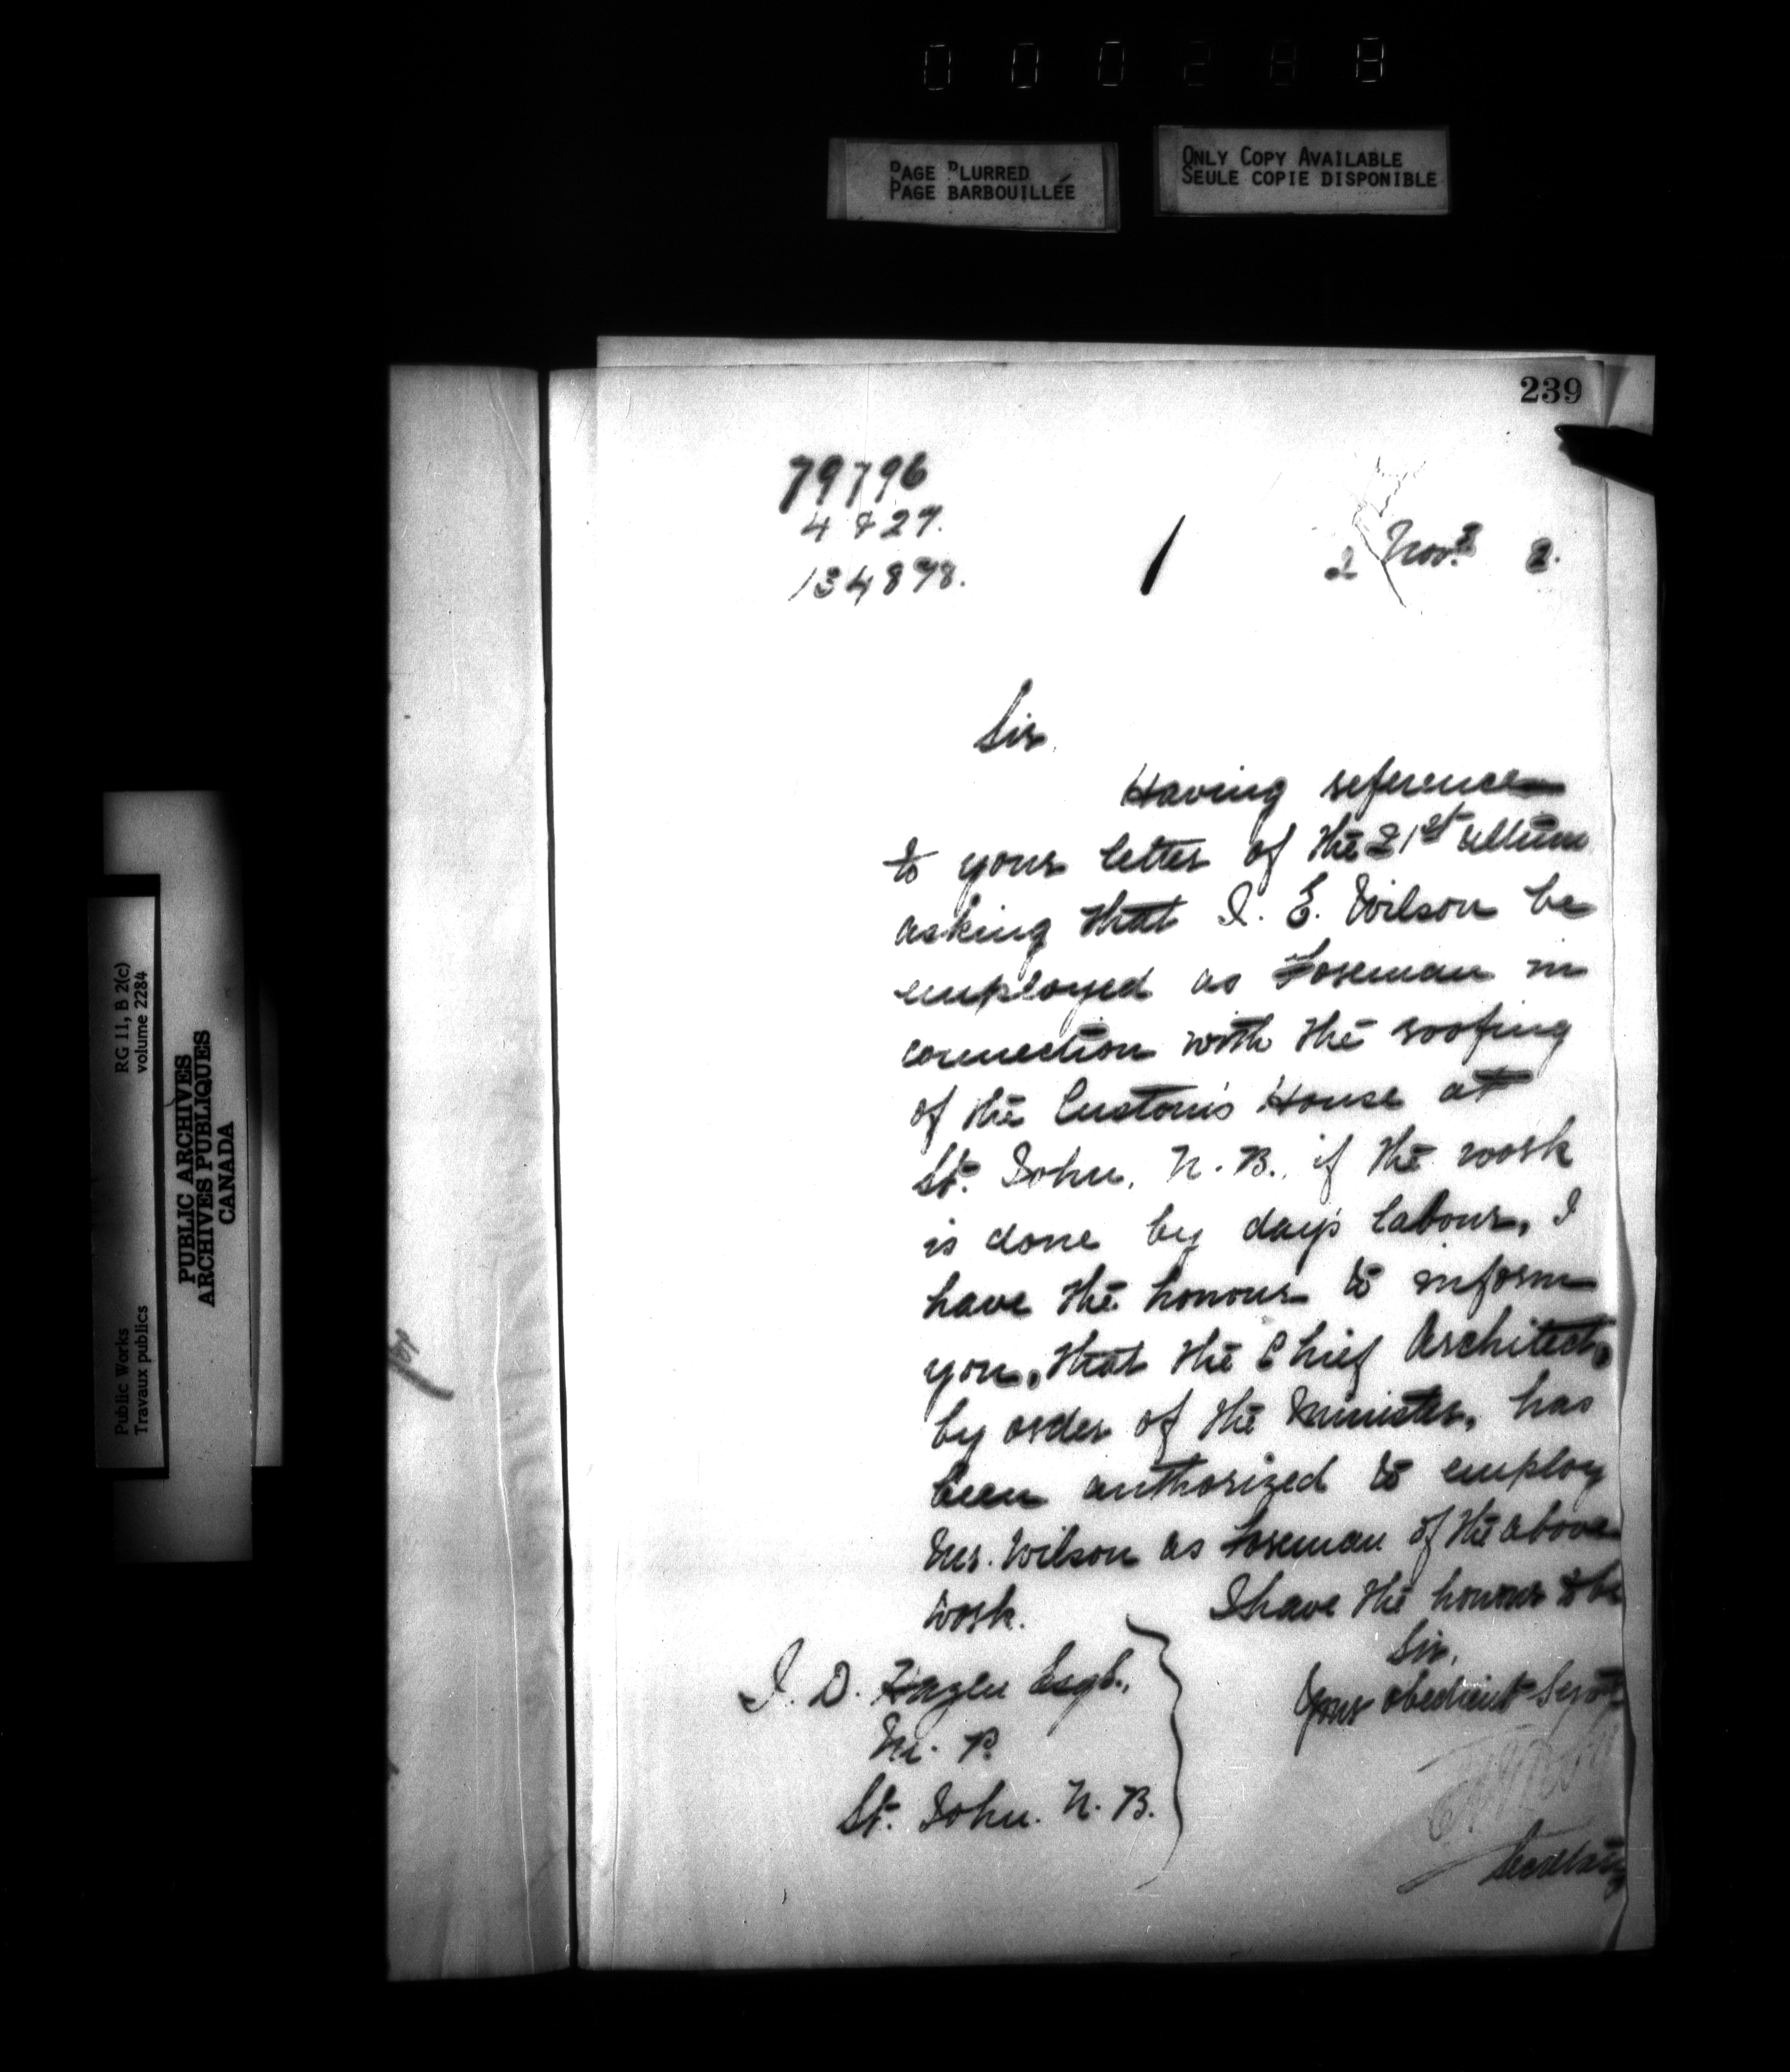 000288
PAGE BLURRED
PAGE BARBOUILLÉE
ONLY COPY AVAILABLE
SEULE COPIE DISPONIBLE
239
79796
4827.
134898.
2 Nov. 2.
Sir,
Having reference
to your letter of the 21st ultimo
asking that J. E. Wilson be
employed as Foreman in
connection with the roofing
of the Custom's House at
St. John, N. B., if the work
is done by day's labour, I
have the honour to inform
you, that the Chief Architect,
by order of the Minister, has
been authorized to employ
Mr. Wilson as Foreman of the above
work. I have the honour to be
Sir,
Your obedient Servt
Secretary
J. D. Hazen Esqr.,
M. P.
St. John. N. B.
Public Works
Travaux publics
RG 11, B 2(c)
volume 2284
PUBLIC ARCHIVES
ARCHIVES PUBLIQUES
CANADA